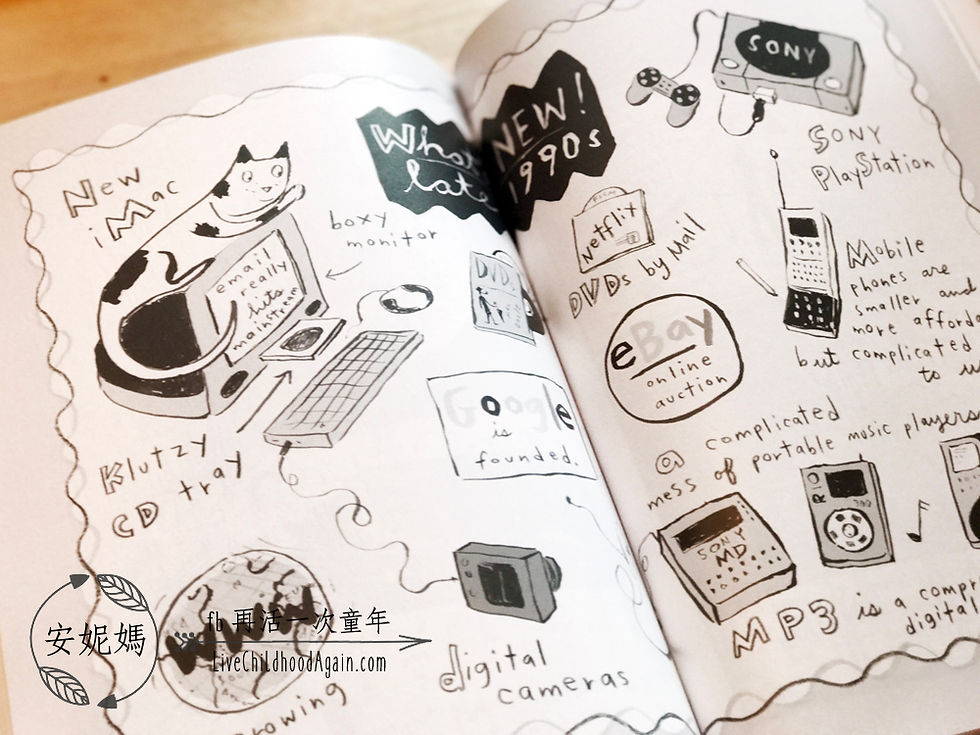 New
iMac
boxy
monitor
email
really
hits
mainstream
DVDs
Klutzy
CD tray
Google
is
founded.
WWW
digital
cameras
NEW!
1990s
SONY
SONY
PlayStation
Netflix
DVDs by Mail
Mobile
phones are
smaller and
more
but complicated
to
eBay
online
auction
a complicated
mess of portable music players
RIO
SONY
MD
MP3 is a
安妮媽
fb 再活一次童年
LiveChildhoodAgain.com